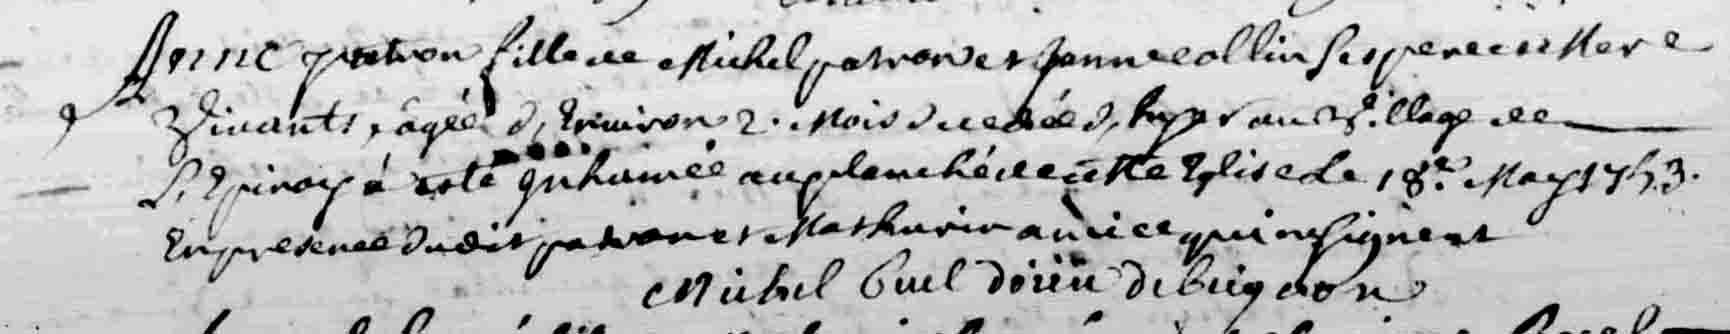 Anne patron fille de Michel patron et Janne collin ses pere et Mere
Vivants, agée d'Environ 2. Mois decedée d'hyer au Village de
L'Epinay à esté Inhumée au planché de cette Eglise Le 18e. May 1753.
En presence dudit patron et Mathurin amice qui ne signent
Michel Buel doïen de Guignon